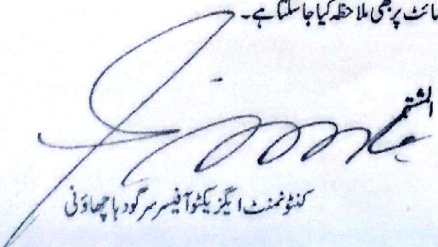 ائٹ پر بھی ملاحظہ کیا جا سکتا ہے۔
المشتہر
کنٹونمنٹ ایگزیکٹو آفیسر سرگودہا چھاؤنی